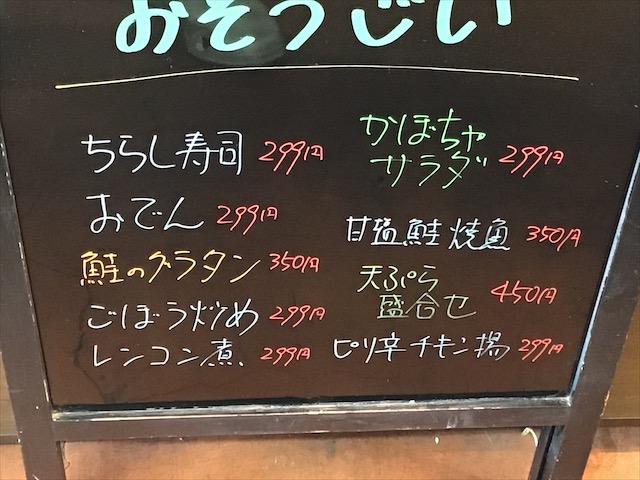 おそうざい
ちらし寿司 299円
おでん 299円
鮭のグラタン 350円
ごぼう炒め 299円
レンコン煮 299円
かぼちゃ
サラダ 299円
甘塩鮭焼魚 350円
天ぷら
盛合せ 450円
ピリ辛チキン揚 299円